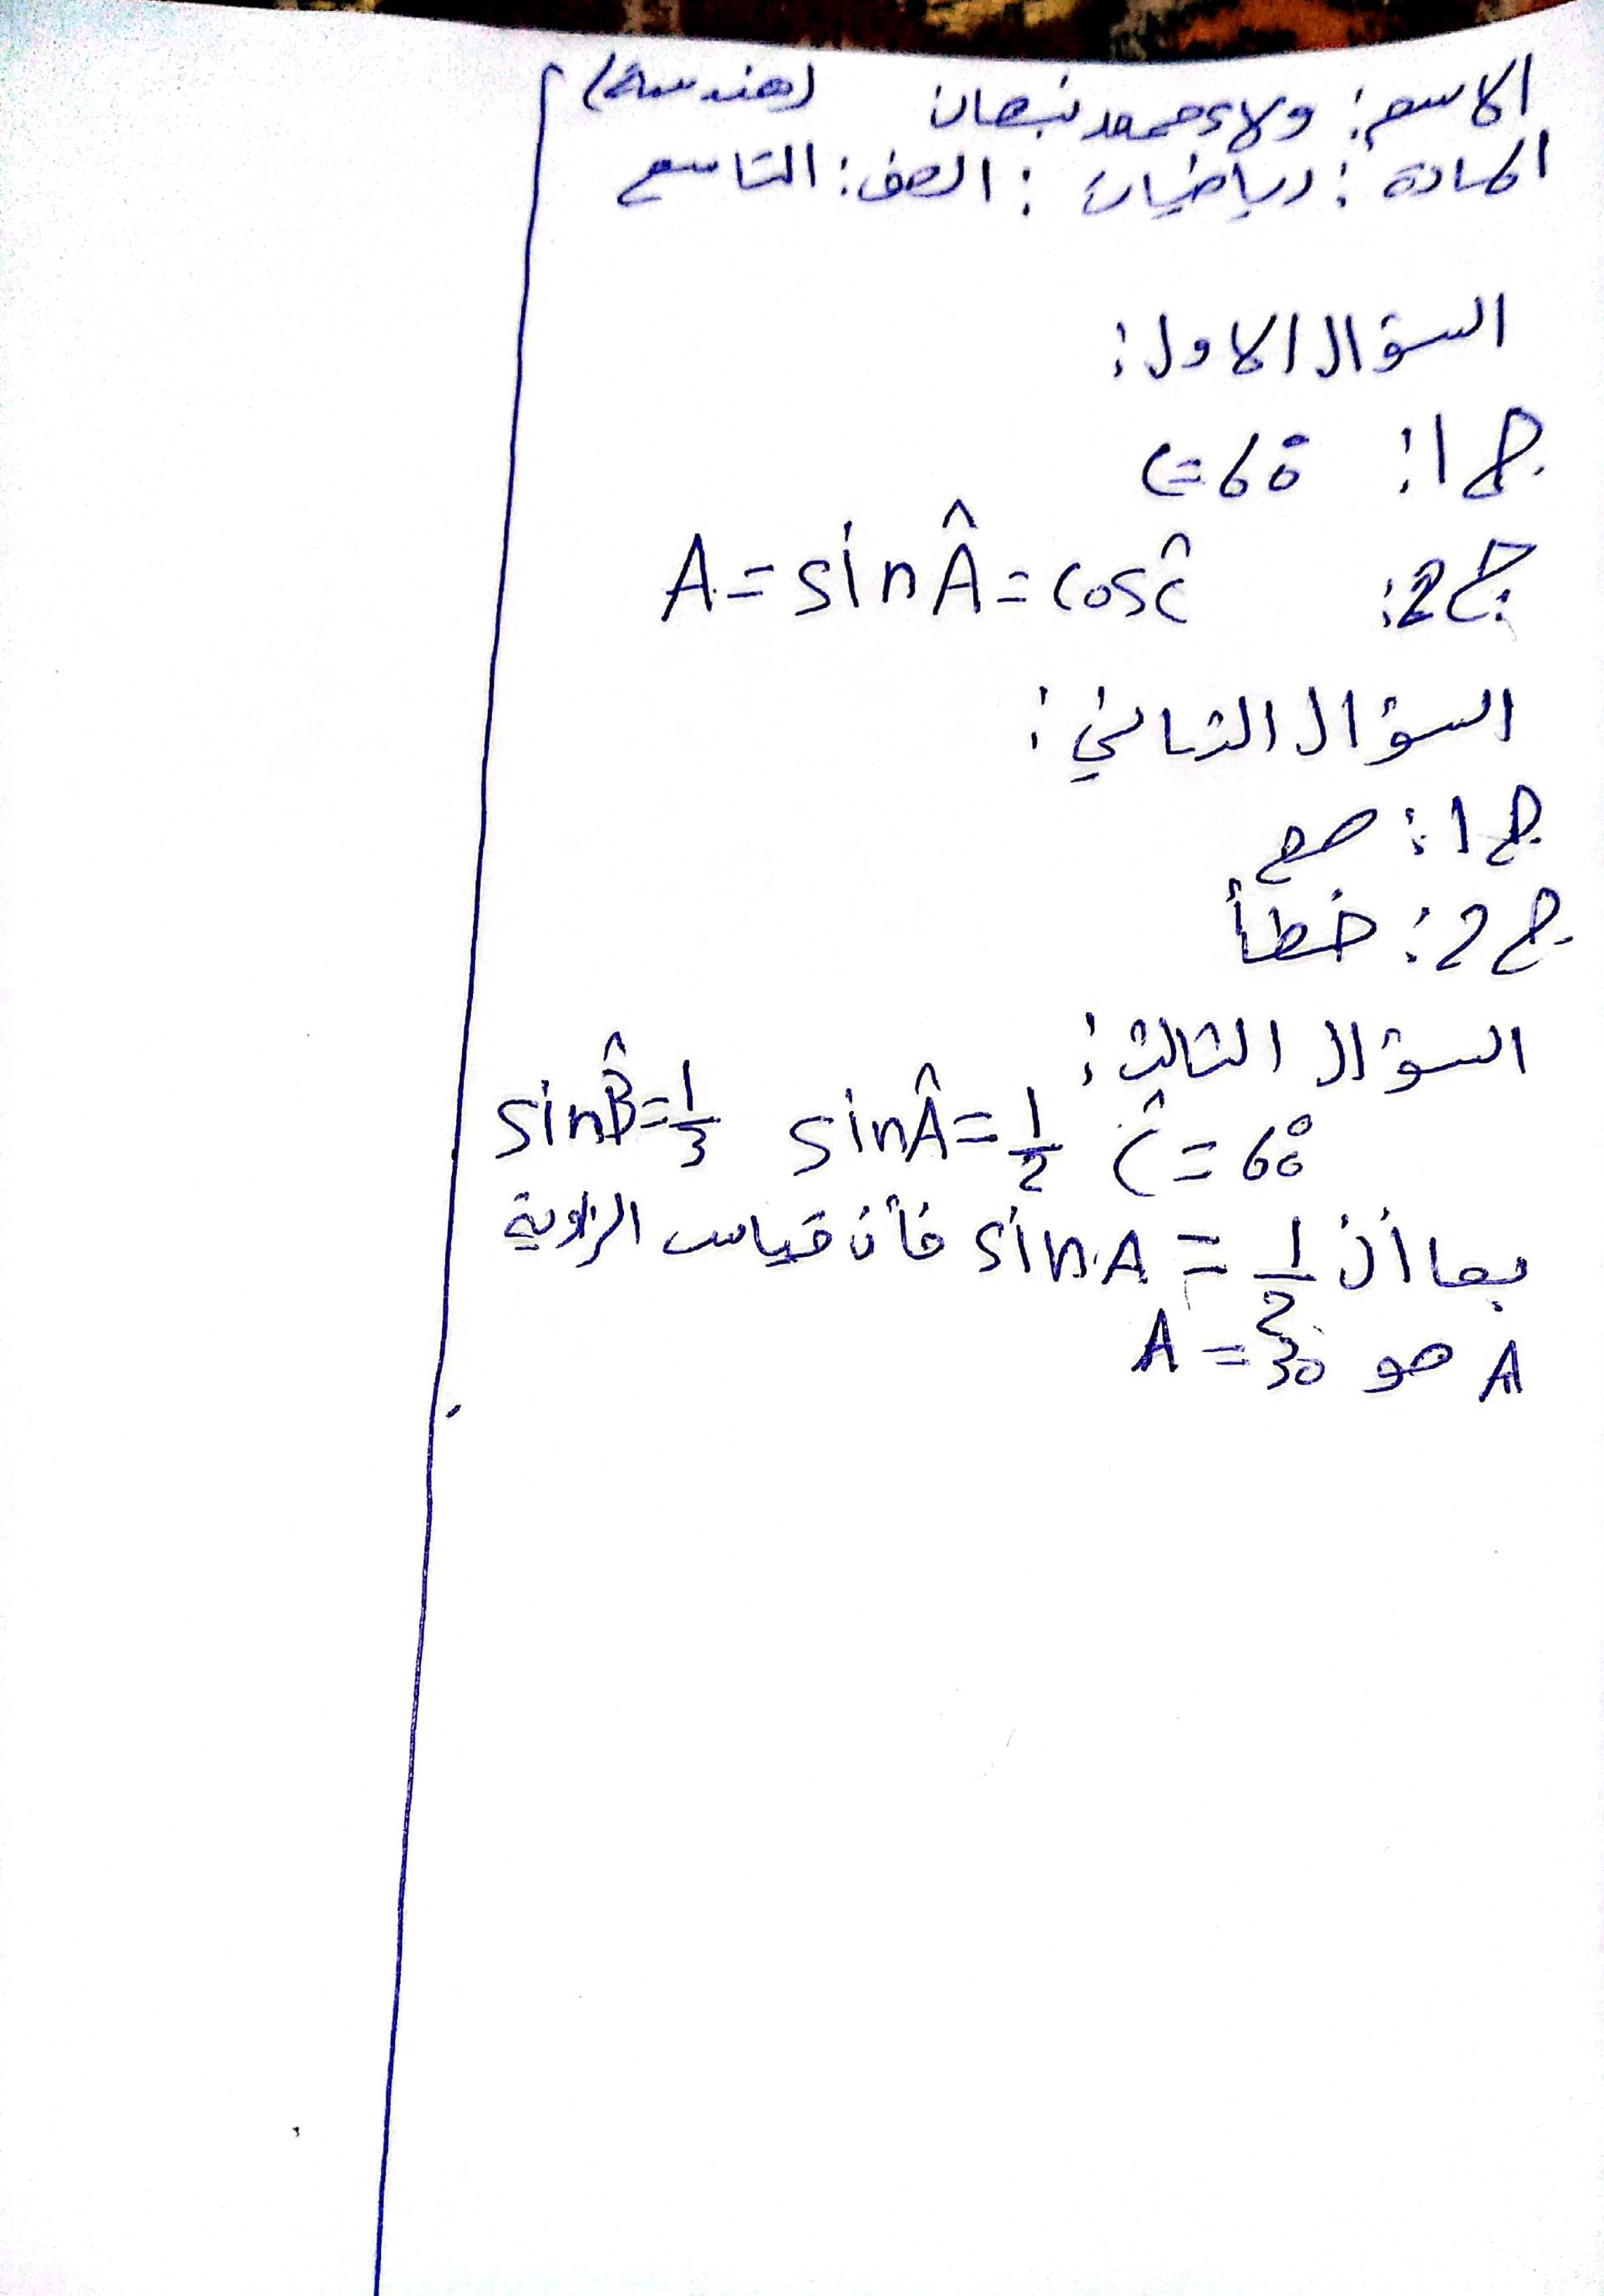 الاسم: ولاء محمد نبهان (هندسة)
المادة: رياضيات: الصف: التاسع
السؤال الاول:
ج1: C=60°
ج2: A=sinÂ=cosĈ
السؤال الثاني:
ج1: صح
ج2: خطأ
السؤال الثالث:
Ĉ=60° sinÂ=1/2 sinB̂=1/3
بما أن sinA=1/2 فأن قياس الزاوية
A هو A=30